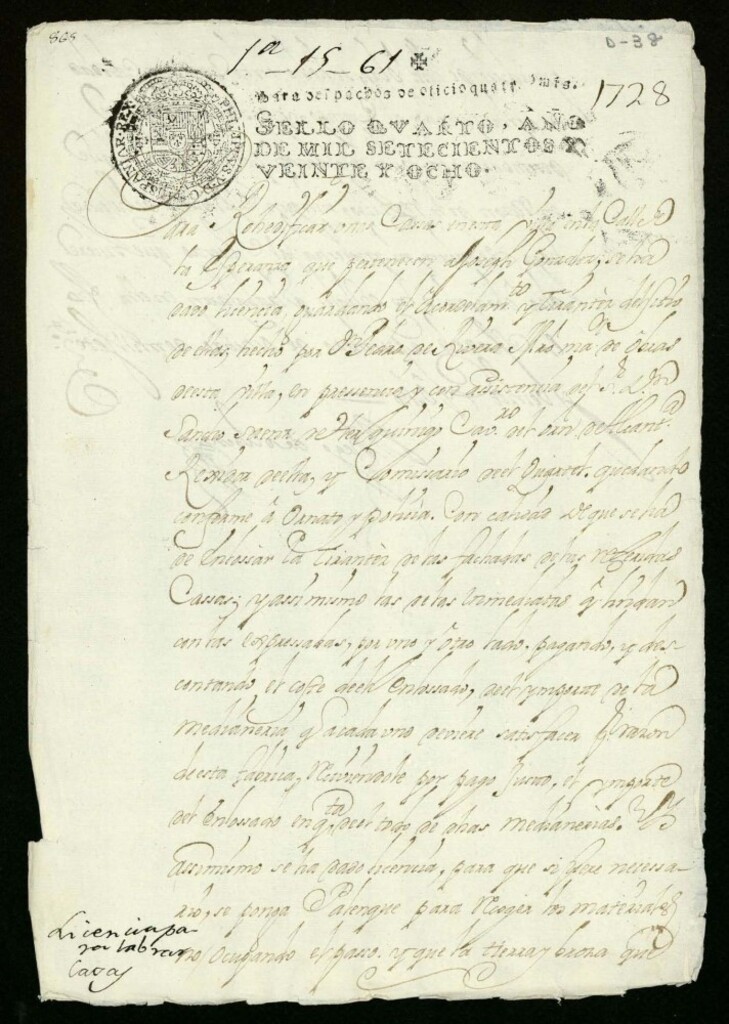 868
D-38
1ª - 15 - 61
1728
Para despachos de oficio quatro mrs.
SELLO QVARTO, AÑO
DE MIL SETECIENTOS Y
VEINTE Y OCHO.
PHILIPPUS V D G HISPANIAR REX
ara Redificar unas Cassas en esta en la Calle de
la Esperanza que pertenecen a Joseph Gonzalez; se ha
dado licencia, guardando el acordelam.to y tirantez del sitio
de ellas, hecho por Dn Pedro de Rivera Mro mr de obras
de esta Villa, en pressencia y con asistencia del Sr. Dn
Cavro. del orn. de Alcant.ra
Rexidor de ella, y Comissario de el Quartel. quedando
conforme a Ornato y policia. Con calidad de que se ha
de enlossar la tirantez de las fachadas de las refferidas
Cassas; y assimismo las de las inmediatas q. hirgan
con las expressadas, por uno y otro lado, pagando, y des-
contando el coste de el enlossado, del ymporte de la
medianeria q. a cada uno deviere satisfacer p. razon
de esta fabrica, reciviendole por pago Justo, el ymporte
del Enlossado en q.ta de el todo de dhas medianerias. Y
Assimismo se ha dado licencia, para que si fuere necessa-
rio, se ponga Palenque para recoger los materiales
no ocupando el passo. y que la tierra y broza que
Licencia pa-
ra labrar
Casas